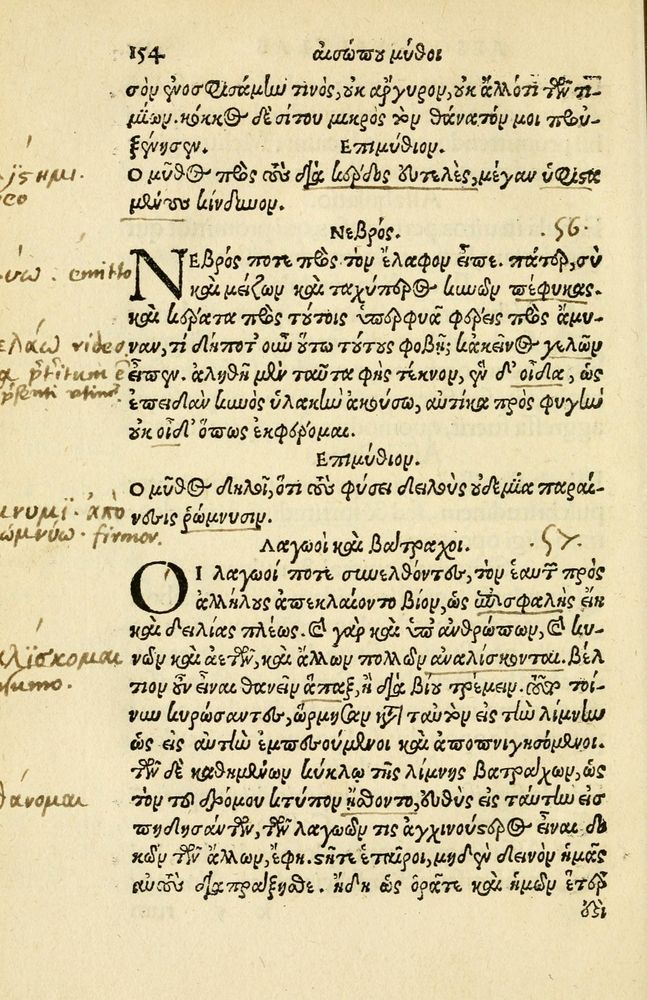 154 αἰσώπου μῦθοι
σὸν ἐνοσφισάμην τινὸς, οὐκ ἄργυρον, οὐκ ἄλλό τι τῶν τι-
μίων. κόκκος δὲ σίτου μικρὸς τὸν θάνατόν μοι προὐ-
ξένησεν. Επιμύθιον.
Ο μῦθος πρὸς τοὺς διὰ κέρδος εὐτελὲς, μέγαν ὑφιστα
μένους κίνδυνον.
Νεβρός. 56.
ΝΕβρός ποτε πρὸς τὸν ἔλαφον εἶπε. πάτερ, σὺ
καὶ μείζων καὶ ταχύτερος κυνῶν πέφυκας.
καὶ κέρατα πρὸς τούτοις ὑπερφυᾶ φέρεις πρὸς ἄμυ-
ναν, τί δήποτ' οὖν οὕτω τούτους φοβῇ; κἀκεῖνος γελῶν
εἶπεν. ἀληθῆ μὲν ταῦτα φὴς τέκνον, ἓν δ' οἶδα, ὡς
ἐπειδὰν κυνὸς ὑλακὴν ἀκούσω, αὐτίκα πρὸς φυγὴν
οὐκ οἶδ' ὅπως ἐκφέρομαι.
Επιμύθιον.
Ο μῦθος δηλοῖ, ὅτι τοὺς φύσει δειλοὺς οὐδεμία παραί-
νεσις ῥώννυσιν.
Λαγωοὶ καὶ Βάτραχοι. 57.
ΟΙ λαγωοί ποτε συνελθόντες, τὸν ἑαυτῶν πρὸς
ἀλλήλους ἀπεκλαίοντο βίον, ὡς ἐπισφαλὴς εἴη
καὶ δειλίας πλέως. καὶ γὰρ καὶ ὑπ' ἀνθρώπων, καὶ κυ-
νῶν καὶ ἀετῶν, καὶ ἄλλων πολλῶν ἀναλίσκονται. Βέλ
τιον οὖν εἶναι θανεῖν ἅπαξ, ἢ διὰ βίου τρέμειν. τοῦτο τοί-
νυν κυρώσαντες, ὥρμησαν κατὰ ταυτὸν εἰς τὴν λίμνην
ὡς εἰς αὐτὴν ἐμπεσούμενοι καὶ ἀποπνιγησόμενοι.
τῶν δὲ καθημένων κύκλῳ τῆς λίμνης βατράχων, ὡς
τὸν τοῦ δρόμου κτύπον ᾔσθοντο, εὐθὺς εἰς ταύτην εἰσ
πηδησάντων, τῶν λαγωῶν τις ἀγχινούστερος εἶναι δο
κῶν τῶν ἄλλων, ἔφη. στῆτε ἑταῖροι, μηδὲν δεινὸν ἡμᾶς
αὐτοὺς διαπράξησθε. ἤδη ὡς ὁρᾶτε καὶ ἡμῶν ἕτερ
emitto
video
ptitum
firmor.